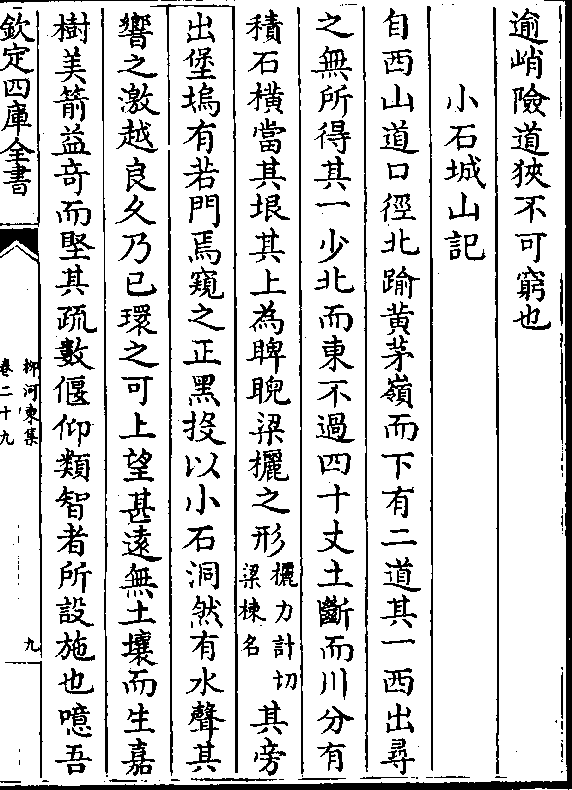 逾峭險道狹不可窮也
小石城山記
自西山道口徑北踰黄茅嶺而下有二道其一西出尋
之無所得其一少北而東不過四十丈土斷而川分有
積石橫當其垠其上為睥睨梁欐之形欐力計切梁棟名其旁
出堡塢有若門焉窺之正黑投以小石洞然有水聲其
響之激越良久乃已環之可上望甚遠無土壤而生嘉
樹美箭益竒而堅其疏數偃仰類智者所設施也噫吾
欽定四庫全書
柳河東集
卷二十九
九